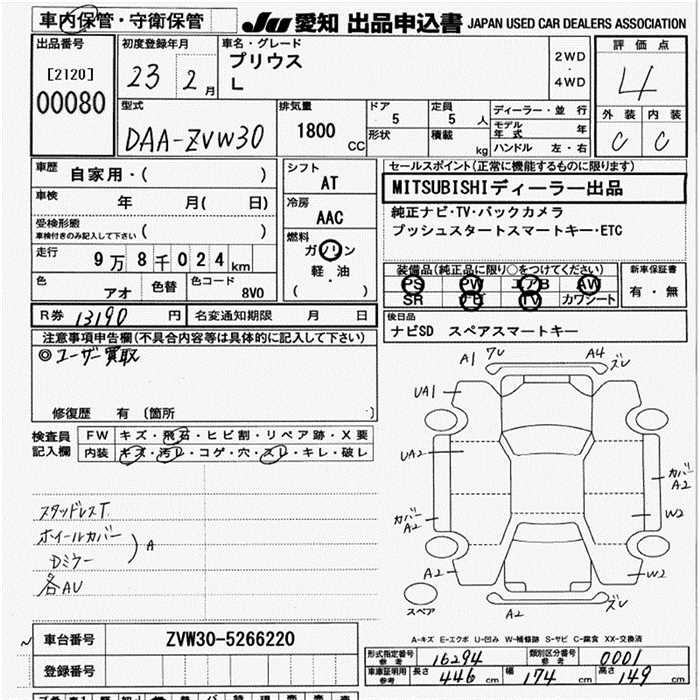 車内保管・守衛保管
JU 愛知 出品申込書 JAPAN USED CAR DEALERS ASSOCIATION
出品番号
[2120]
00080
初度登録年月
23 2月
車名・グレード
プリウス
L
2WD
・
4WD
評価点
4
外装 内装
C C
型式
DAA-ZVW30
排気量
1800 CC
ドア
5
形状
定員
5 人
積載
kg
ディーラー・並行
モデル年式 年
ハンドル 左・右
車歴
自家用・( )
車検
年 月( 日)
受検形態
車検付きのみ記入して下さい ( )
走行
9万8千024km
色
アオ
色替
色コード
8V0
シフト
AT
冷房
AAC
燃料
ガソリン
軽・油
( )
セールスポイント(正常に機能するものに限ります)
MITSUBISHIディーラー出品
純正ナビ・TV・バックカメラ
プッシュスタートスマートキー・ETC
装備品(純正品に限り○をつけてください)
PS PW エアB AW
SR ナビ TV カワシート
新車保証書
有・無
後日品
ナビSD スペアスマートキー
R券 13190 円
名変通知期限 月 日
注意事項申告欄(不具合内容等は具体的に記入して下さい)
◎ユーザー買取
修復歴 有 〔箇所 〕
検査員記入欄
FW キズ・飛石・ヒビ割・リペア跡・X要
内装 キズ・汚レ・コゲ・穴・スレ・キレ・破レ
スタッドレスT
ホイールカバー
Dミラー
)A
各AU
A1 フレ A4 ズレ
UA1
UA2
カバー A2
カバー A2
W2
A2
W2
A2 ズレ
スペア
A-キズ E-エクボ U-凹み W-補修跡 S-サビ C-腐食 XX-交換済
車台番号
ZVW30-5266220
登録番号
形式指定番号 参考 16294
類別区分番号 参考 0001
車庫証明用 参考
長さ 446 cm
幅 174 cm
高さ 149 cm